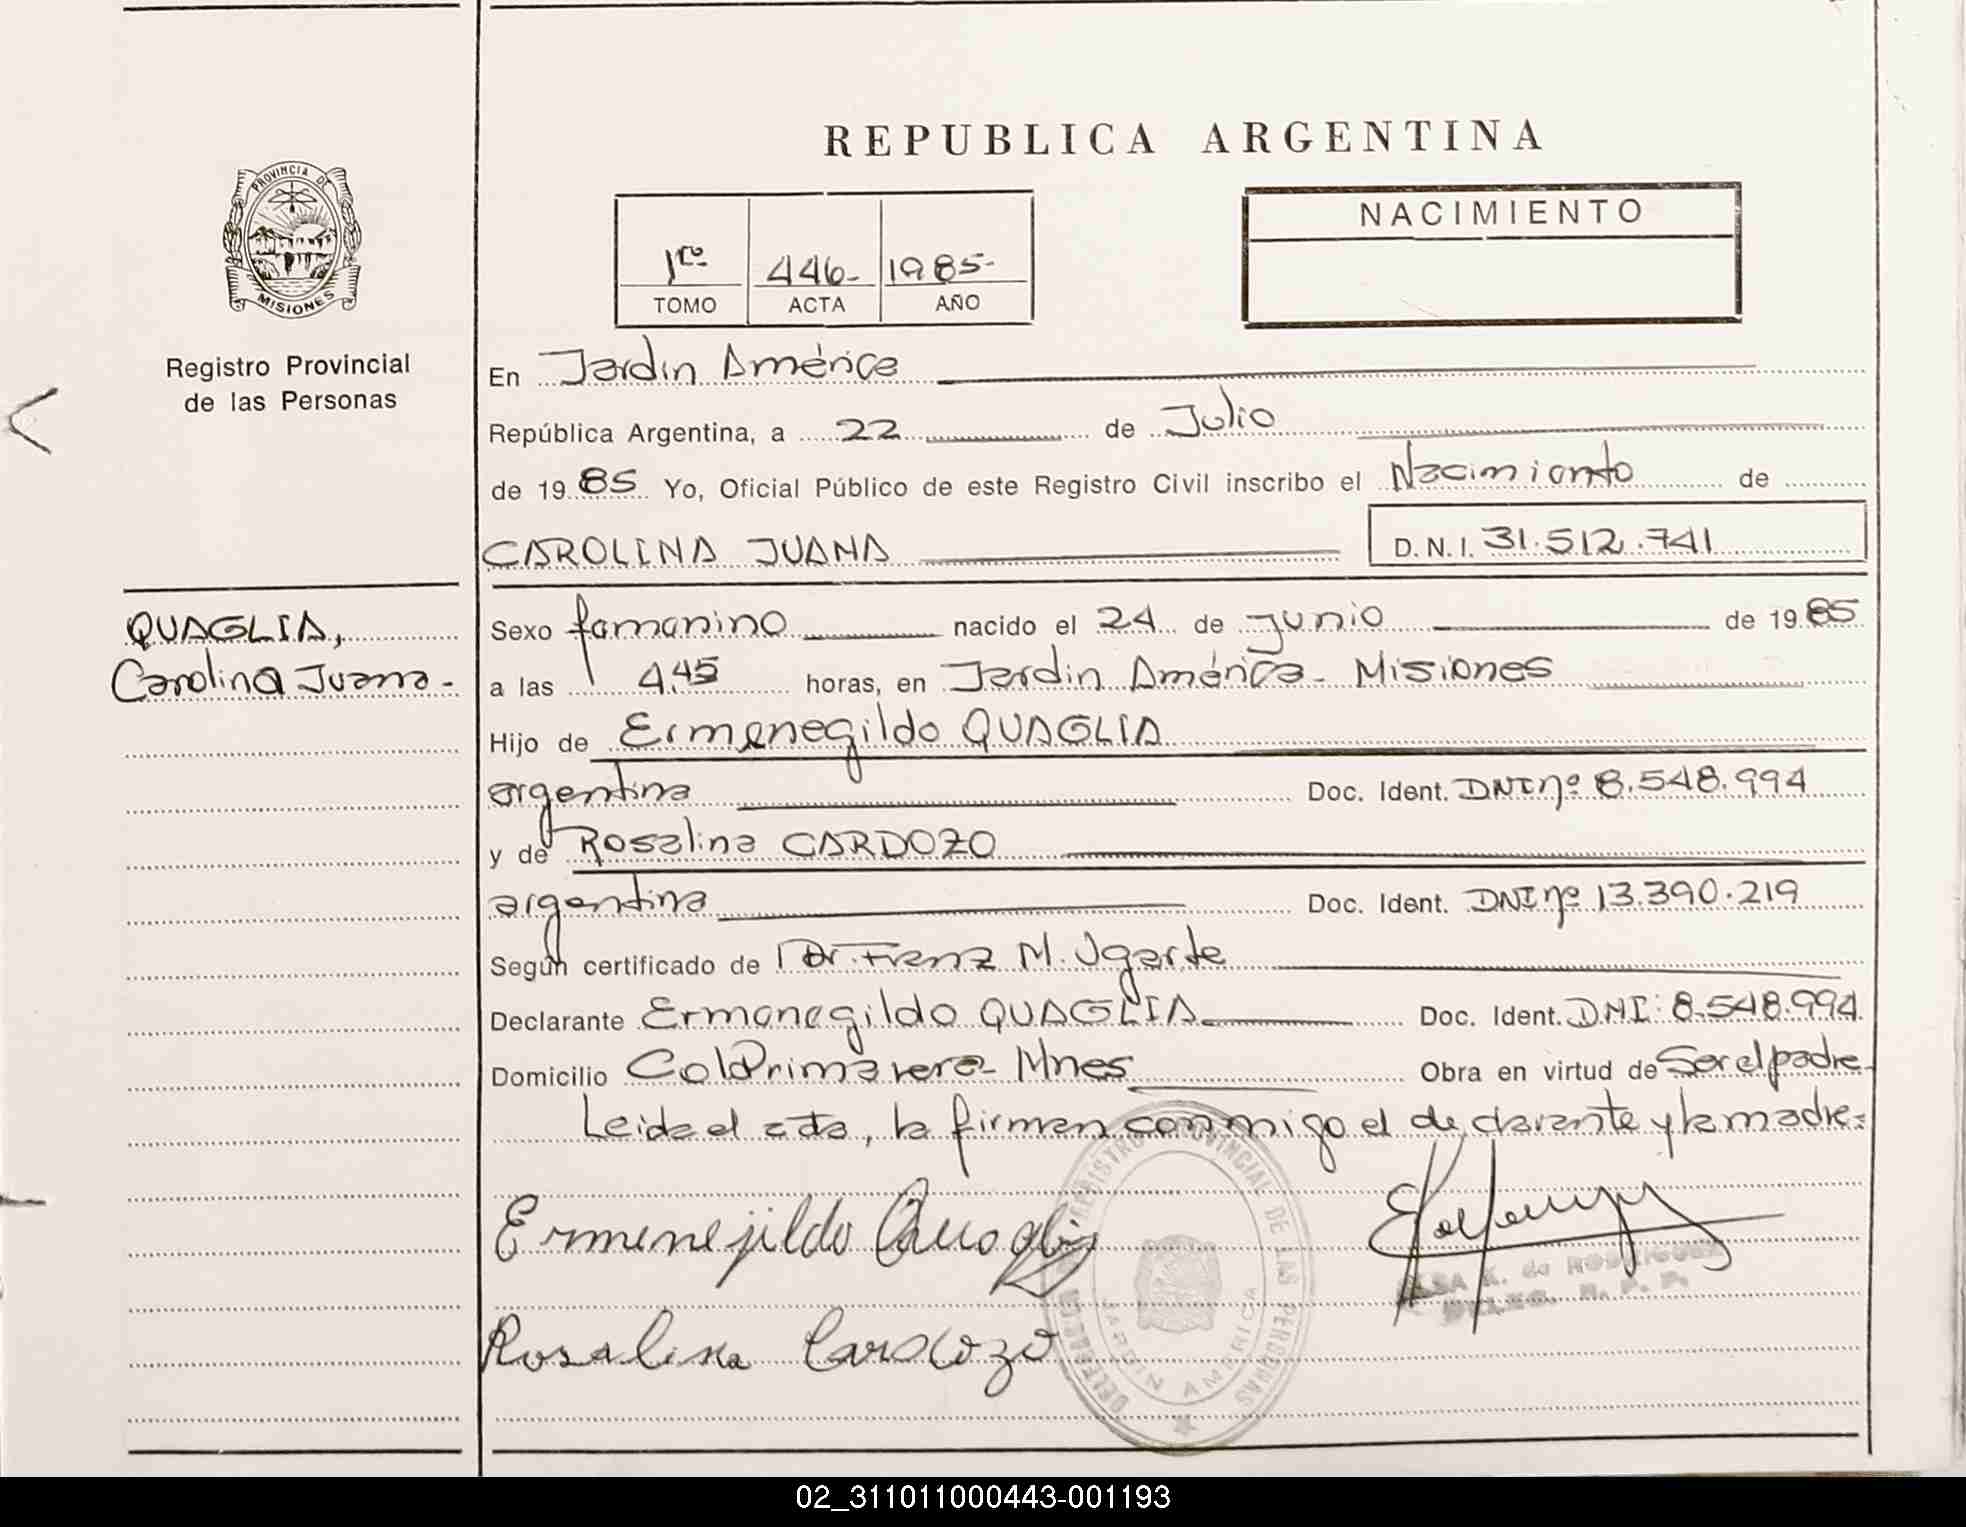 REPUBLICA ARGENTINA
PROVINCIA DE
MISIONES
Registro Provincial
de las Personas
1ro 446- 1985-
TOMO ACTA AÑO
NACIMIENTO
En Jardin América
República Argentina, a 22 de Julio
de 1985 Yo, Oficial Público de este Registro Civil inscribo el Nacimiento de
CAROLINA JUANA D.N.I. 31.512.741
QUAGLIA,
Carolina Juana-
Sexo femenino nacido el 24 de junio de 1985
a las 4,45 horas, en Jardin América- Misiones
Hijo de Ermenegildo QUAGLIA
argentina Doc. Ident. DNI nº 8.548.994
y de Rosalina CARDOZO
argentina Doc. Ident. DNI nº 13.390.219
Según certificado de Dr. Franz M. Ugarte
Declarante Ermenegildo QUAGLIA Doc. Ident. DNI: 8.548.994
Domicilio Col Primavera- Mnes Obra en virtud de Ser el padre-
Leida el acta, la firman conmigo el declarante y la madre:
Ermenejildo Quaglia
Rosalina Cardozo
REGISTRO PROVINCIAL DE LAS PERSONAS
JARDIN AMERICA
ELSA K. de RODRIGUEZ
DELEG. R. P. P.
02_311011000443-001193